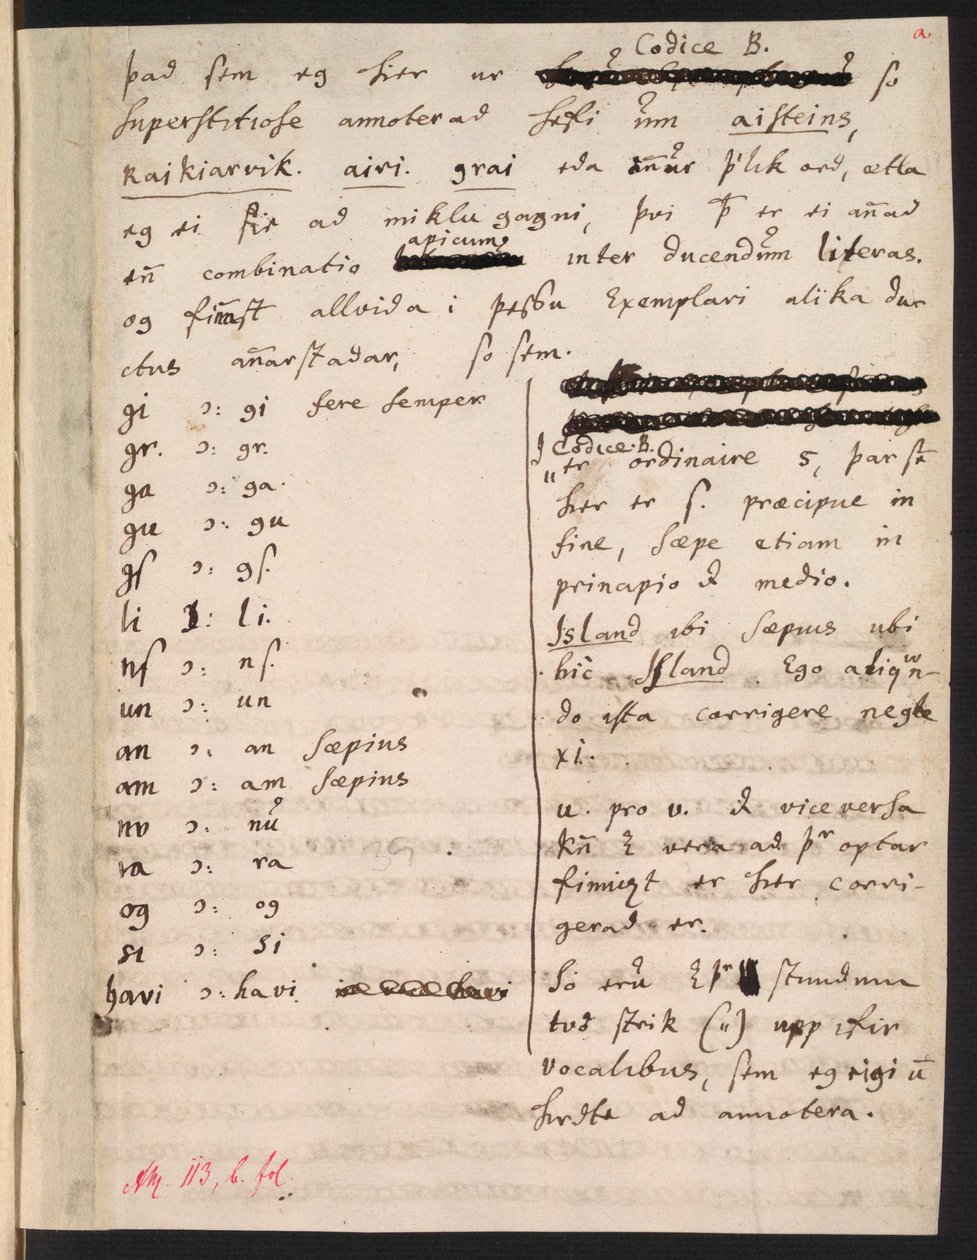 a.
Codice B.
þad sem eg hier ur so
superstitiose annoterad hefi um aisteins,
Raikiarvik. airi. grai eda añur þ'lik ord, ætla
eg ei sie ad miklu gagni, þvi þ̄ er ei añad
apicum
eñ combinatio inter ducendum literas.
og fiñast allvida i þessu Exemplari alika duc
ctus añarstadar, so sem.
gi ɔ: gi fere semper
gr. ɔ: gr.
ga ɔ: ga.
gu ɔ: gu
gſ ɔ: gſ.
li ɔ: li.
nſ ɔ: nſ.
un ɔ: un
an ɔ: an sæpius
am ɔ: am sæpius
nv ɔ: nu
ra ɔ: ra
og ɔ: og
si ɔ: si
havi ɔ: havi
J Codice B.
er ordinaire s, þar sē
hier er ſ. præcipue in
fine, sæpe etiam in
principio & medio.
Island ibi sæpius ubi
hic Iſland. Ego aliqvn-
do ista corrigere negle
xi.
u. pro v. & vice versa
kñ & vera ad þr optar
finnizt er hier corri-
gerad er.
So eru & þr stundum
tvö strik (") upp ifir
vocalibus, sem eg eigi ū
hirdte ad annotera.
AM. 113, b. fol.